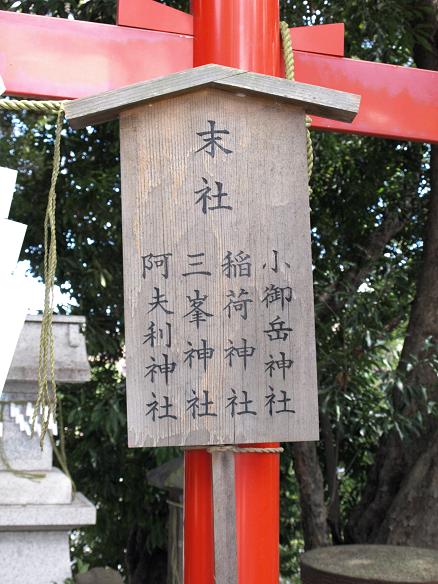 末社
小御岳神社
稲荷神社
三峯神社
阿夫利神社